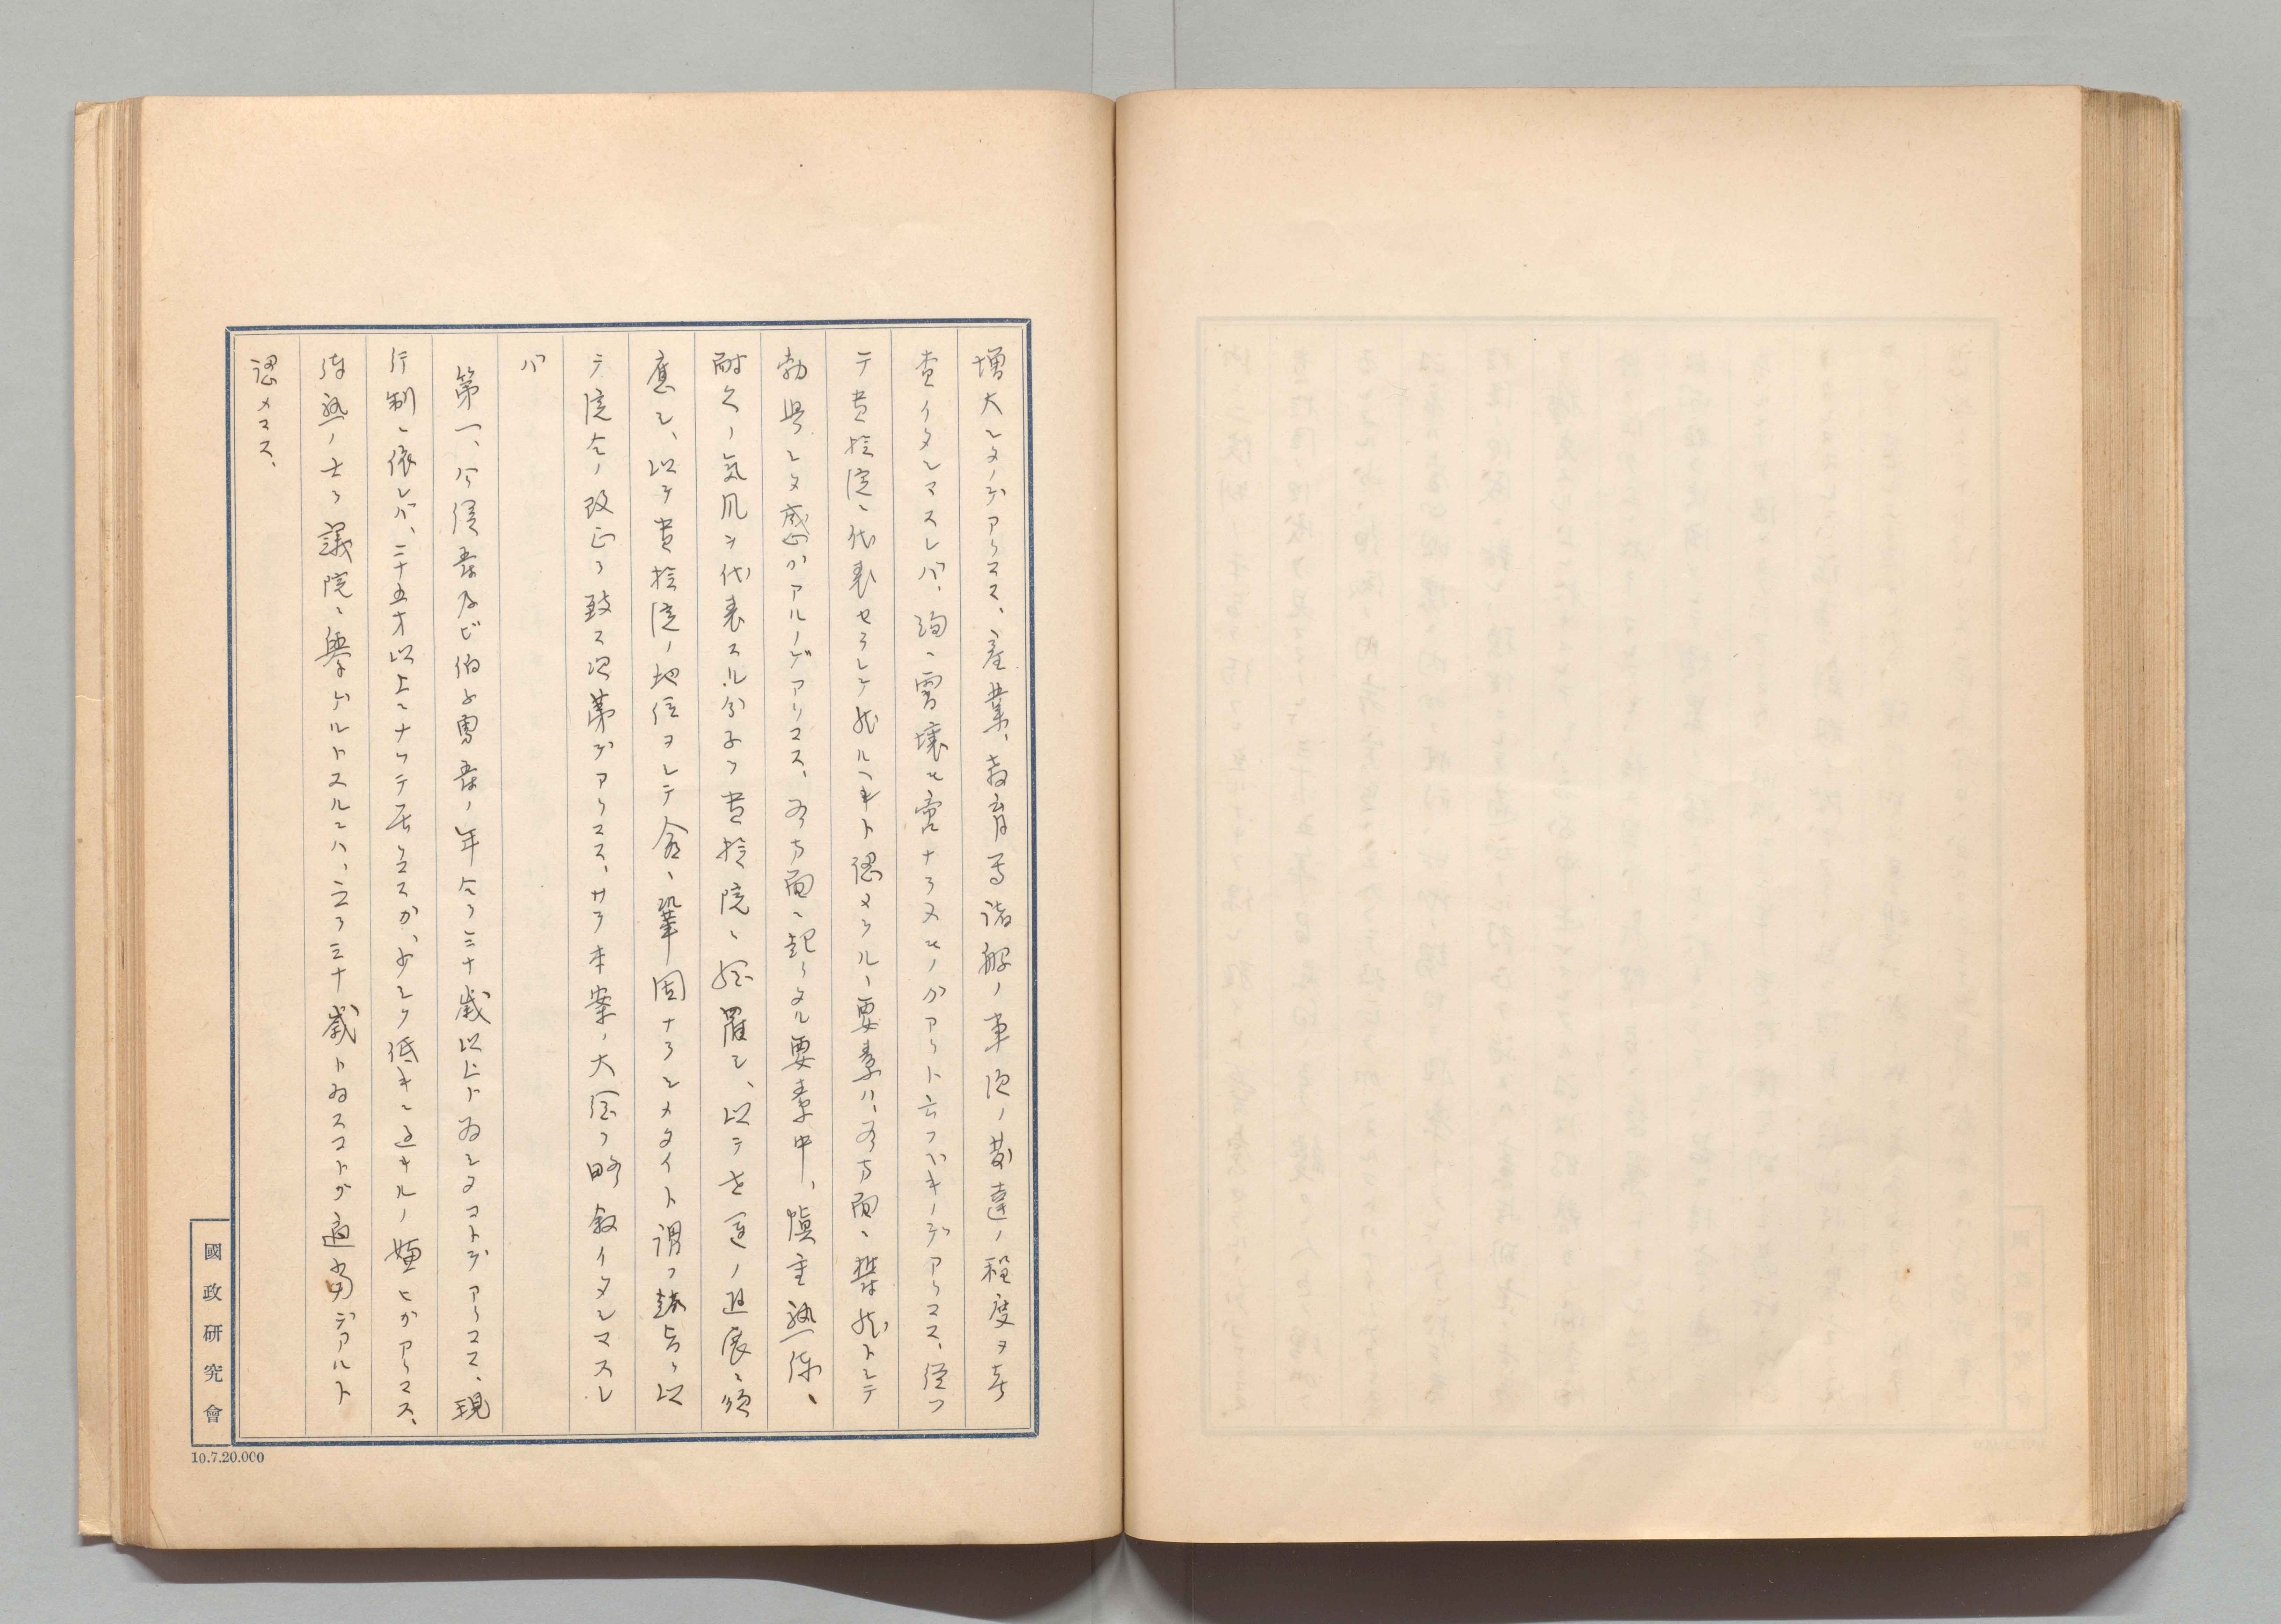 増大シタノデアリマス、産業、教育等諸般ノ事項ノ発達ノ程度ヲ考
査イタシマスレバ、洵ニ霄壌モ啻ナラヌモノガアルト云フベキデアリマス、従ツ
テ貴族院ニ代表セラレテ然ルベキト認メラルヽ要素ハ、各方面ニ欝然トシテ
勃興シタ感ガアルノデアリマス、各方面ニ起リタル要素中、慎重熟練、
耐久ノ気風ヲ代表スル分子ヲ貴族院ニ網羅シ、以テ世運ノ進展ニ順
應シ、以テ貴族院ノ地位ヲシテ愈々鞏固ナラシメタイト謂フ趣旨ヲ以
テ院令ノ改正ヲ致ス次第デアリマス、サテ本案ノ大綱ヲ略叙イタシマスレ
バ
第一、公侯爵及ビ伯子男爵ノ年令ヲ三十歳以上ト為シタコトデアリマス、現
行制ニ依レバ、二十五才以上ニナツテ居リマスガ、少シク低キニ過キルノ嫌ヒガアリマス、
練熟ノ士ヲ議院ニ挙ゲルトスルニハ、之ヲ三十歳ト為スコトガ適当デアルト
認メマス、
國政研究會
10.7.20.000